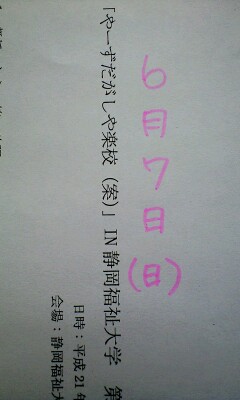 6月7日(日)
「やーずだがしや楽校（案）」IN 静岡福祉大学　第
日時：平成 21 年
会場：静岡福祉大